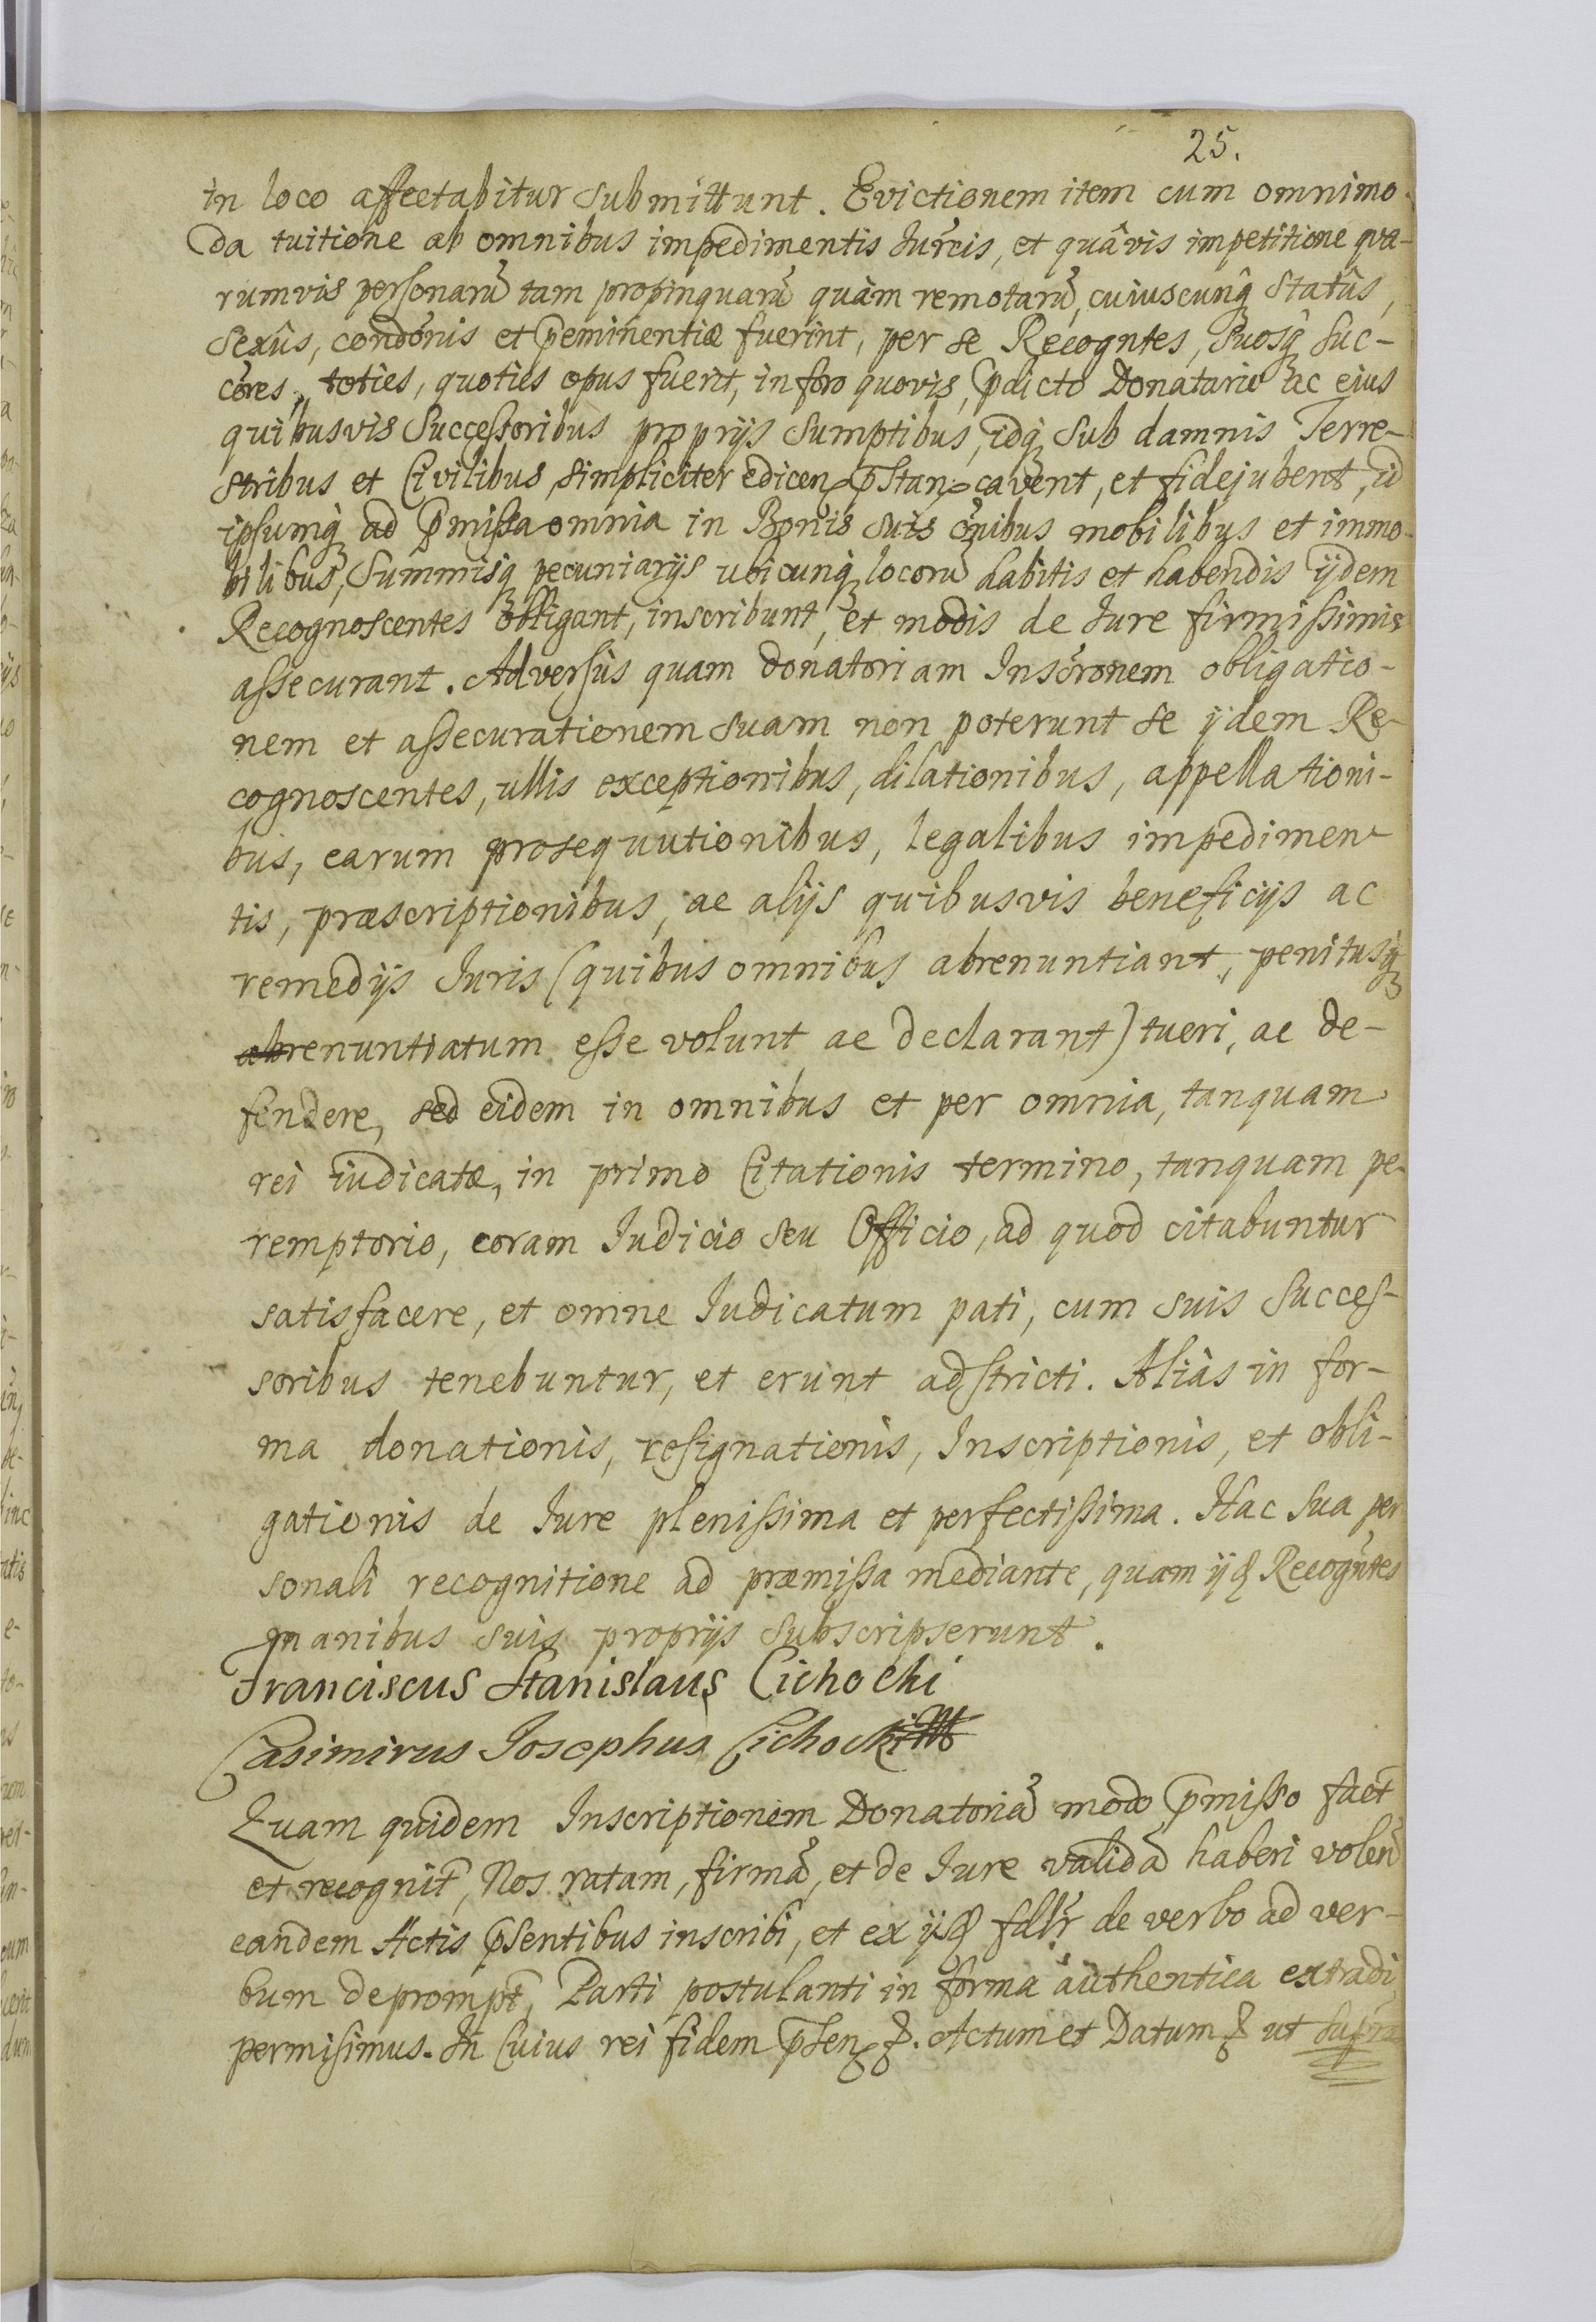 25.
in loco affectabitur submittunt. Evictionem item cum omnimo-
da tuitione ab omnibus impedimentis Iurcis, et quâvis impetitione qva-
rumvis personarũ tam propinquarũ quàm remotarũ, cuiuscunq̃ statûs,
sexûs, condõnis et p̃eminentiæ fuerint, per se Recogntes, Suosq̃ suc-
cõres, toties, quoties opus fuerit, in foro quovis, p̃dicto Donatario ac eius
quibusvis Successoribus proprijs sumptibus, idq̃ sub damnis Terre-
stribus et Civilibus simpliciter edicen p̃stan cavent, et fidejubent, id
ipsumq̃ ad p̃missa omnia in Bonis suis õnibus mobilibus et immo-
bilibus, Summisq̃ pecuniarijs ubicunq̃ locorũ habitis et habendis ijdem
Recognoscentes obligant, inscribunt, et modis de Iure firmissimis
assecurant. Adversùs quam donatoriam Inscrõnem obligatio-
nem et assecurationem suam non poterunt se ijdem Re-
cognoscentes, ullis exceptionibus, dilationibus, appellationi-
bus, earum prosequutionibus, legalibus impedimen-
tis, præscriptionibus, ac alijs quibusvis beneficijs ac
remedijs Iuris (quibus omnibus abrenuntiant, penitusq̃
abrenuntiatum esse volunt ac declarant) tueri, ac de-
fendere, sed eidem in omnibus et per omnia, tanquam
rei iudicatæ, in primo Citationis termino, tanquam pe-
remptorio, coram Iudicio seu Officio, ad quod citabuntur
satisfacere, et omne Iudicatum pati, cum suis Succes-
soribus tenebuntur, et erunt adstricti. Aliàs in for-
ma donationis, resignationis, Inscriptionis, et obli-
gationis de Iure plenissima et perfectissima. Hac sua per
sonali recognitione ad præmissa mediante, quam ijd Recogñtes
manibus suis proprijs subscripserunt.
Franciscus Stanislaus Cichocki
Casimirus Iosephus Cichocki
Quam quidem Inscriptionem Donatoriã modo p̃misso fact̃
et recognit̃, Nos ratam, firmã, et de Iure validã haberi volen̄
eandem Actis p̃sentibus inscribi, et ex ijsd fdlr̃ de verbo ad ver-
bum deprompt̃, Parti postulanti in forma authentica extradi
permisimus. In Cuius rei fidem p̃sen &. Actum et Datum & ut supra